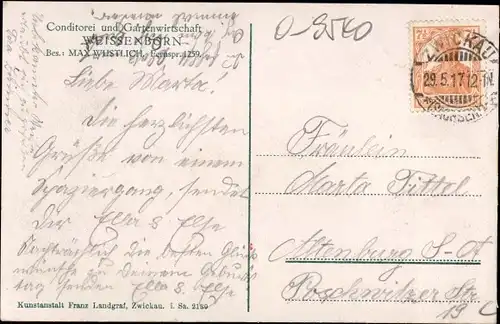 Conditorei und Gartenwirtschaft
WEISSENBORN
Bes.: MAX WÜSTLICH. Fernspr. 1259.
0-9540
7½
ZWICKAU
29.5.17 12
(SACHSEN)
Liebe Marta!
Die herzlichsten
Grüße von einem
Spaziergang, sendet
Dir Ella & Else
Nachträglich die besten Glück
wünsche zu Deinem Geburts
tag senden Ella & Else
Fräulein
Marta Tittel
Altenburg S-A
Poschwitzer Str
19
Kunstanstalt Franz Landgraf, Zwickau. i. Sa. 2180